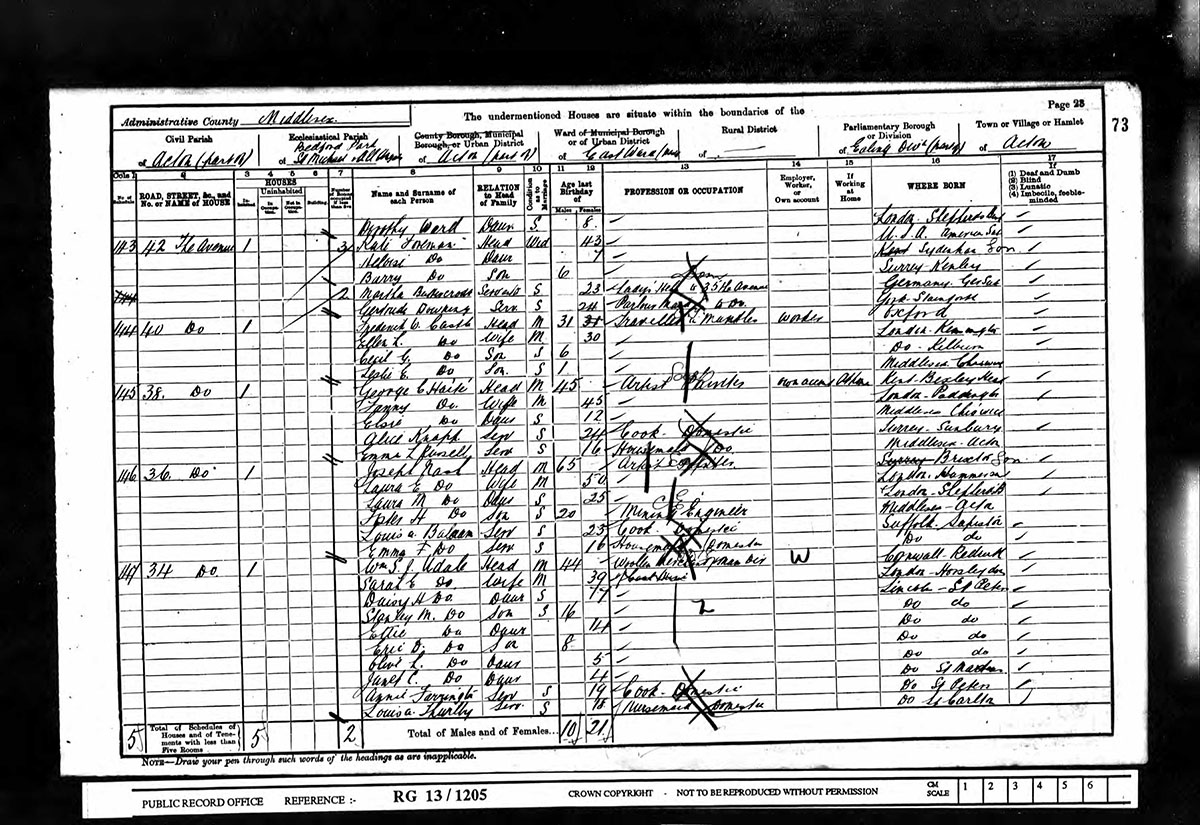 Page 23
73
Administrative County Middlesex
The undermentioned Houses are situate within the boundaries of the
Civil Parish
of Acton (part of)
Ecclesiastical Parish
Bedford Park
of St Michael & All Angels
County Borough, Municipal Borough, or Urban District
of Acton (part of)
Ward of Municipal Borough or of Urban District
of East Ward (part)
Rural District
of
Parliamentary Borough or Division
of Ealing Divn (part of)
Town or Village or Hamlet
of Acton
Cols 1 2 3 4 5 6 7 8 9 10 11 12 13 14 15 16 17
No. of Schedule
ROAD, STREET, &c., and No. or NAME of HOUSE
HOUSES
Inhabited
Uninhabited
In Occupation
Not in Occupation
Building
Name and Surname of each Person
RELATION to Head of Family
Condition as to Marriage
Age last Birthday of
Males Females
PROFESSION OR OCCUPATION
Employer, Worker, or Own account
If Working at Home
WHERE BORN
(1) Deaf and Dumb
(2) Blind
(3) Lunatic
(4) Imbecile, feeble-minded
Dorothy Ward Daur S 8 London
143 42 The Avenue 1 3 Kate Foreman Head Wid 43 U.S.A.
Do Daur 7 Kent Sydenham
Barry Do Son 6 Surrey Kenley
2 Martha Servant S 23 35 The Avenue Germany
Gertrude Serv S 24 Parlour Maid Do York
144 40 Do 1 Frederick W. Castle Head M 31 Traveller in Worker Oxford
Ellen L. Do Wife M 30 London
Cecil G. Do Son S 6 Do Kilburn
Leslie E. Do Son S 1 Middlesex Chiswick
145 38 Do 1 George C Haité Head M 45 Artist Painter own account At home Kent Bexley Heath
Fanny Do Wife M 45 London Paddington
Elsie Do Daur S 12 Middlesex Chiswick
Alice Knapp Serv S 24 Cook Domestic Surrey Sunbury
Emma L Russell Serv S 16 Housemaid Do Middlesex Acton
146 36 Do 1 Joseph Nash Head M 65 Artist Painter Surrey Brixton
Laura E Do Wife M 50 London Hammersmith
Laura M Do Daur S 25 London
H Do Son S 20 Mining Engineer Middlesex Acton
Louisa Serv S 23 Cook Domestic Suffolk
Emma F Do Serv S 16 Housemaid Domestic Do do
147 34 Do 1 Wm S. J. Udale Head M 44 Woollen W Cornwall Redruth
Sarah E Do Wife M 39 London Horsleydown
Daisy H Do Daur S 17 Lincoln St Peter
Stanley M. Do Son S 16 Do do
Do Daur 14 Do do
Eric D. Do Son 8 Do do
Olive L. Do Daur 5 Do do
Janet C. Do Daur 4 Do St Martin
Annie Serv S 19 Cook Domestic Do St Peter
Louisa Thurlby Serv S 18 Nursemaid Domestic Do
5 Total of Schedules of Houses and of Tenements with less than Five Rooms 5 2 Total of Males and of Females... 10 21
NOTE—Draw your pen through such words of the headings as are inapplicable.
PUBLIC RECORD OFFICE REFERENCE :- RG 13/1205 CROWN COPYRIGHT - NOT TO BE REPRODUCED WITHOUT PERMISSION CM SCALE 1 2 3 4 5 6